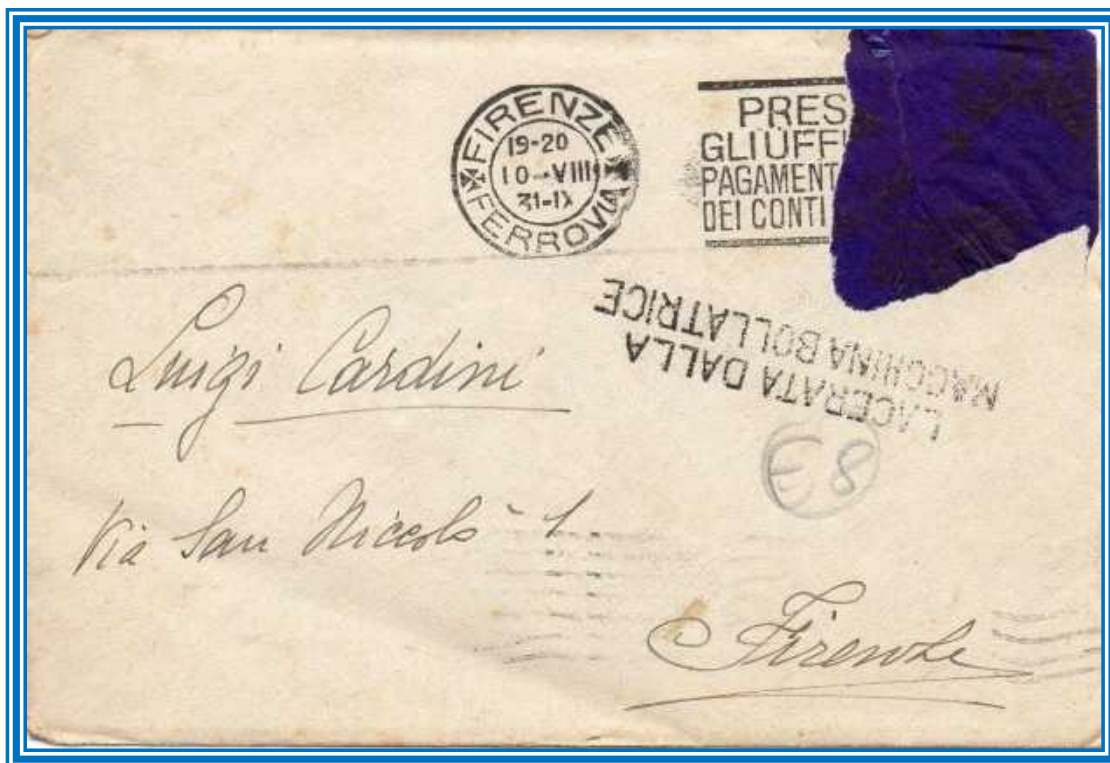 FIRENZE
19-20
10·VIII
31-IX
FERROVIA
PRES
GLI UFFI
PAGAMENT
DEI CONTI
LACERATA DALLA
MACCHINA BOLLATRICE
E8
Luigi Cardini
Via San Niccolò 1
Firenze